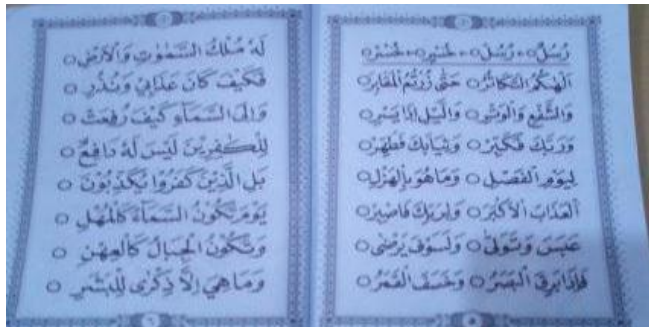 رُسُلٌ ○ رُسُلٌ ○ خُسْرٍ ○ خُسْرٍ ○
اَلْهٰىكُمُ التَّكَاثُرُ ○ حَتّٰى زُرْتُمُ الْمَقَابِرَ ○
وَالشَّفْعِ وَالْوَتْرِ ○ وَالَّيْلِ اِذَا يَسْرِ ○
وَرَبَّكَ فَكَبِّرْ ○ وَثِيَابَكَ فَطَهِّرْ ○
لِيَوْمِ الْفَصْلِ ○ وَمَا هُوَ بِالْهَزْلِ ○
الْعَذَابَ الْاَكْبَرَ ○ وَلِرَبِّكَ فَاصْبِرْ ○
عَبَسَ وَتَوَلّٰى ○ وَلَسَوْفَ يَرْضٰى ○
فَاِذَا بَرِقَ الْبَصَرُ ○ وَخَسَفَ الْقَمَرُ ○
لَهُ مُلْكُ السَّمٰوٰتِ وَالْاَرْضِ ○
فَكَيْفَ كَانَ عَذَابِيْ وَنُذُرِ ○
وَاِلَى السَّمَاۤءِ كَيْفَ رُفِعَتْ ○
لِلْكٰفِرِيْنَ لَيْسَ لَهُ دَافِعٌ ○
بَلِ الَّذِيْنَ كَفَرُوْا يُكَذِّبُوْنَ ○
يَوْمَ تَكُوْنُ السَّمَاۤءُ كَالْمُهْلِ ○
وَتَكُوْنُ الْجِبَالُ كَالْعِهْنِ ○
وَمَا هِيَ اِلَّا ذِكْرٰى لِلْبَشَرِ ○